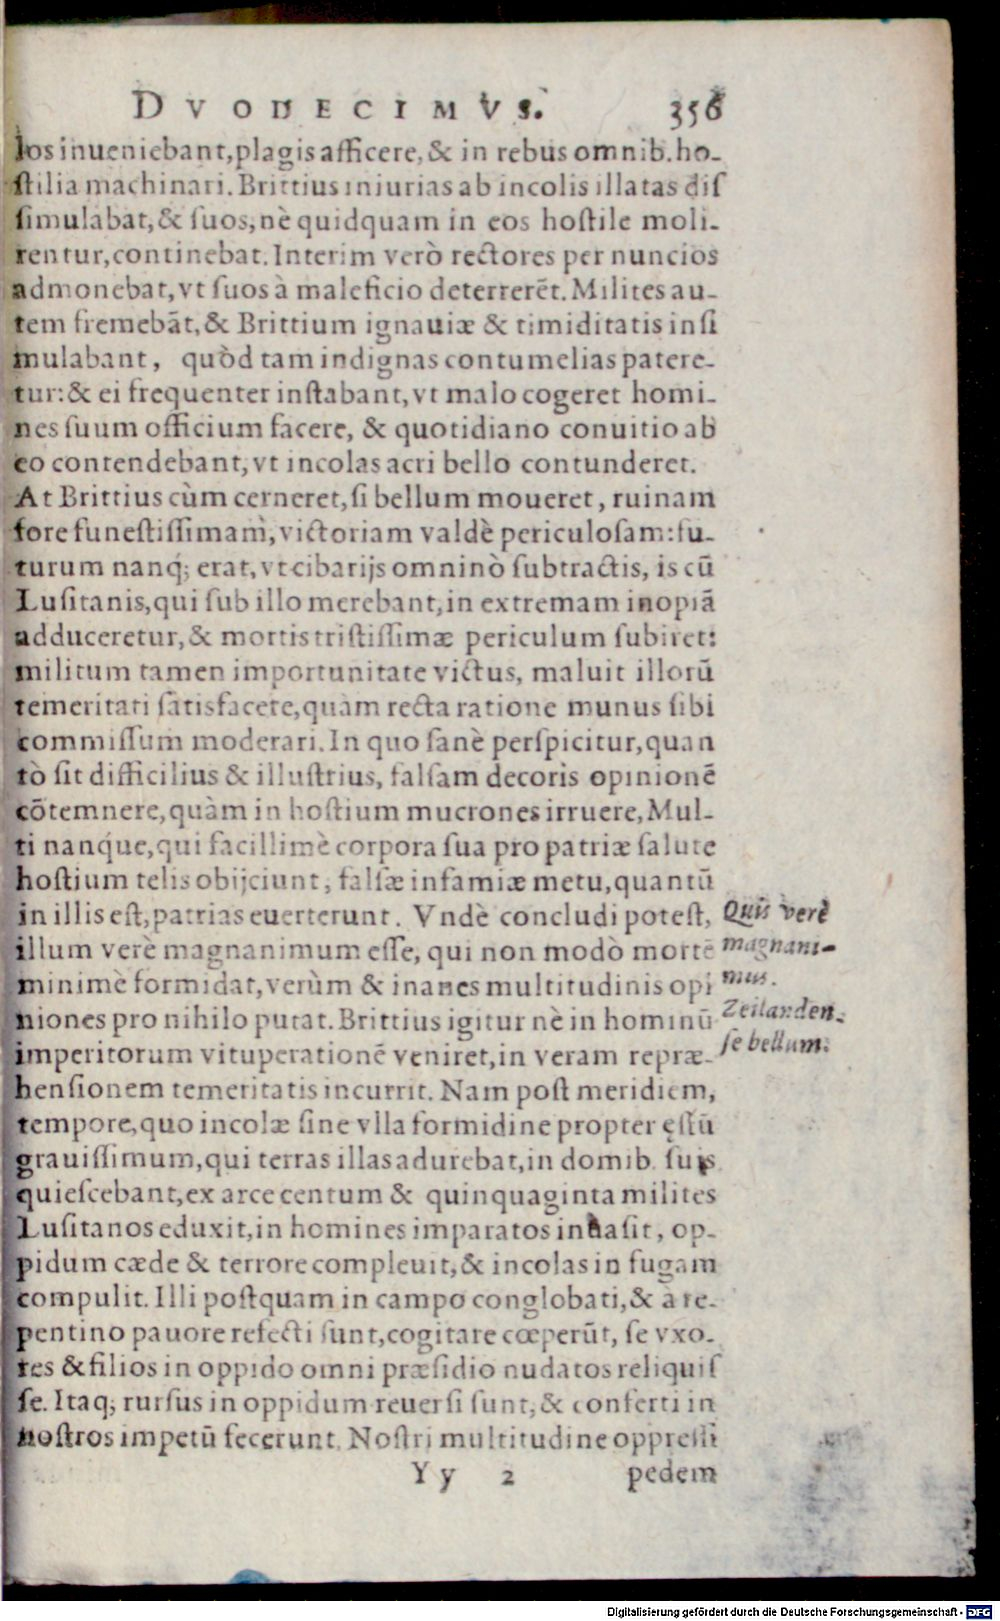 DVODECIMVS. 356
los inueniebant, plagis afficere, & in rebus omnib. ho-
ſtilia machinari. Brittius iniurias ab incolis illatas diſ
ſimulabat, & ſuos, nè quidquam in eos hoſtile moli-
rentur, continebat. Interim verò rectores per nuncios
admonebat, vt ſuos à maleficio deterrerēt. Milites au-
tem fremebāt, & Brittium ignauiæ & timiditatis inſi
mulabant, quòd tam indignas contumelias patere-
tur: & ei frequenter inſtabant, vt malo cogeret homi-
nes ſuum officium facere, & quotidiano conuitio ab
eo contendebant, vt incolas acri bello contunderet.
At Brittius cùm cerneret, ſi bellum moueret, ruinam
fore funeſtiſſimam, victoriam valdè periculoſam: fu-
turum nanq; erat, vt cibarijs omninò ſubtractis, is cū
Luſitanis, qui ſub illo merebant, in extremam inopiā
adduceretur, & mortis triſtiſſimæ periculum ſubiret:
militum tamen importunitate victus, maluit illorū
temeritati ſatisfacere, quàm recta ratione munus ſibi
commiſſum moderari. In quo ſanè perſpicitur, quan
tò ſit difficilius & illuſtrius, falſam decoris opinionē
cōtemnere, quàm in hoſtium mucrones irruere, Mul-
ti nanq́ue, qui facillimè corpora ſua pro patriæ ſalute
hoſtium telis obijciunt, falſæ infamiæ metu, quantū
in illis eſt, patrias euerterunt. Vndè concludi poteſt,
illum verè magnanimum eſſe, qui non modò mortē
minimè formidat, verùm & inanes multitudinis opi
niones pro nihilo putat. Brittius igitur nè in hominū
imperitorum vituperationē veniret, in veram repræ-
henſionem temeritatis incurrit. Nam poſt meridiem,
tempore, quo incolæ ſine vlla formidine propter ęſtū
grauiſſimum, qui terras illas adurebat, in domib. ſuis
quieſcebant, ex arce centum & quinquaginta milites
Luſitanos eduxit, in homines imparatos inuaſit, op-
pidum cæde & terrore compleuit, & incolas in fugam
compulit. Illi poſtquam in campo conglobati, & à re-
pentino pauore refecti ſunt, cogitare cœperūt, ſe vxo-
res & filios in oppido omni præſidio nudatos reliquiſ
ſe. Itaq; rurſus in oppidum reuerſi ſunt, & conferti in
noſtros impetū fecerunt. Noſtri multitudine oppreſſi
Yy 2 pedem
Quis verè
magnani-
mus.
Zeilanden-
ſe bellum.
Digitalisierung gefördert durch die Deutsche Forschungsgemeinschaft - DFG